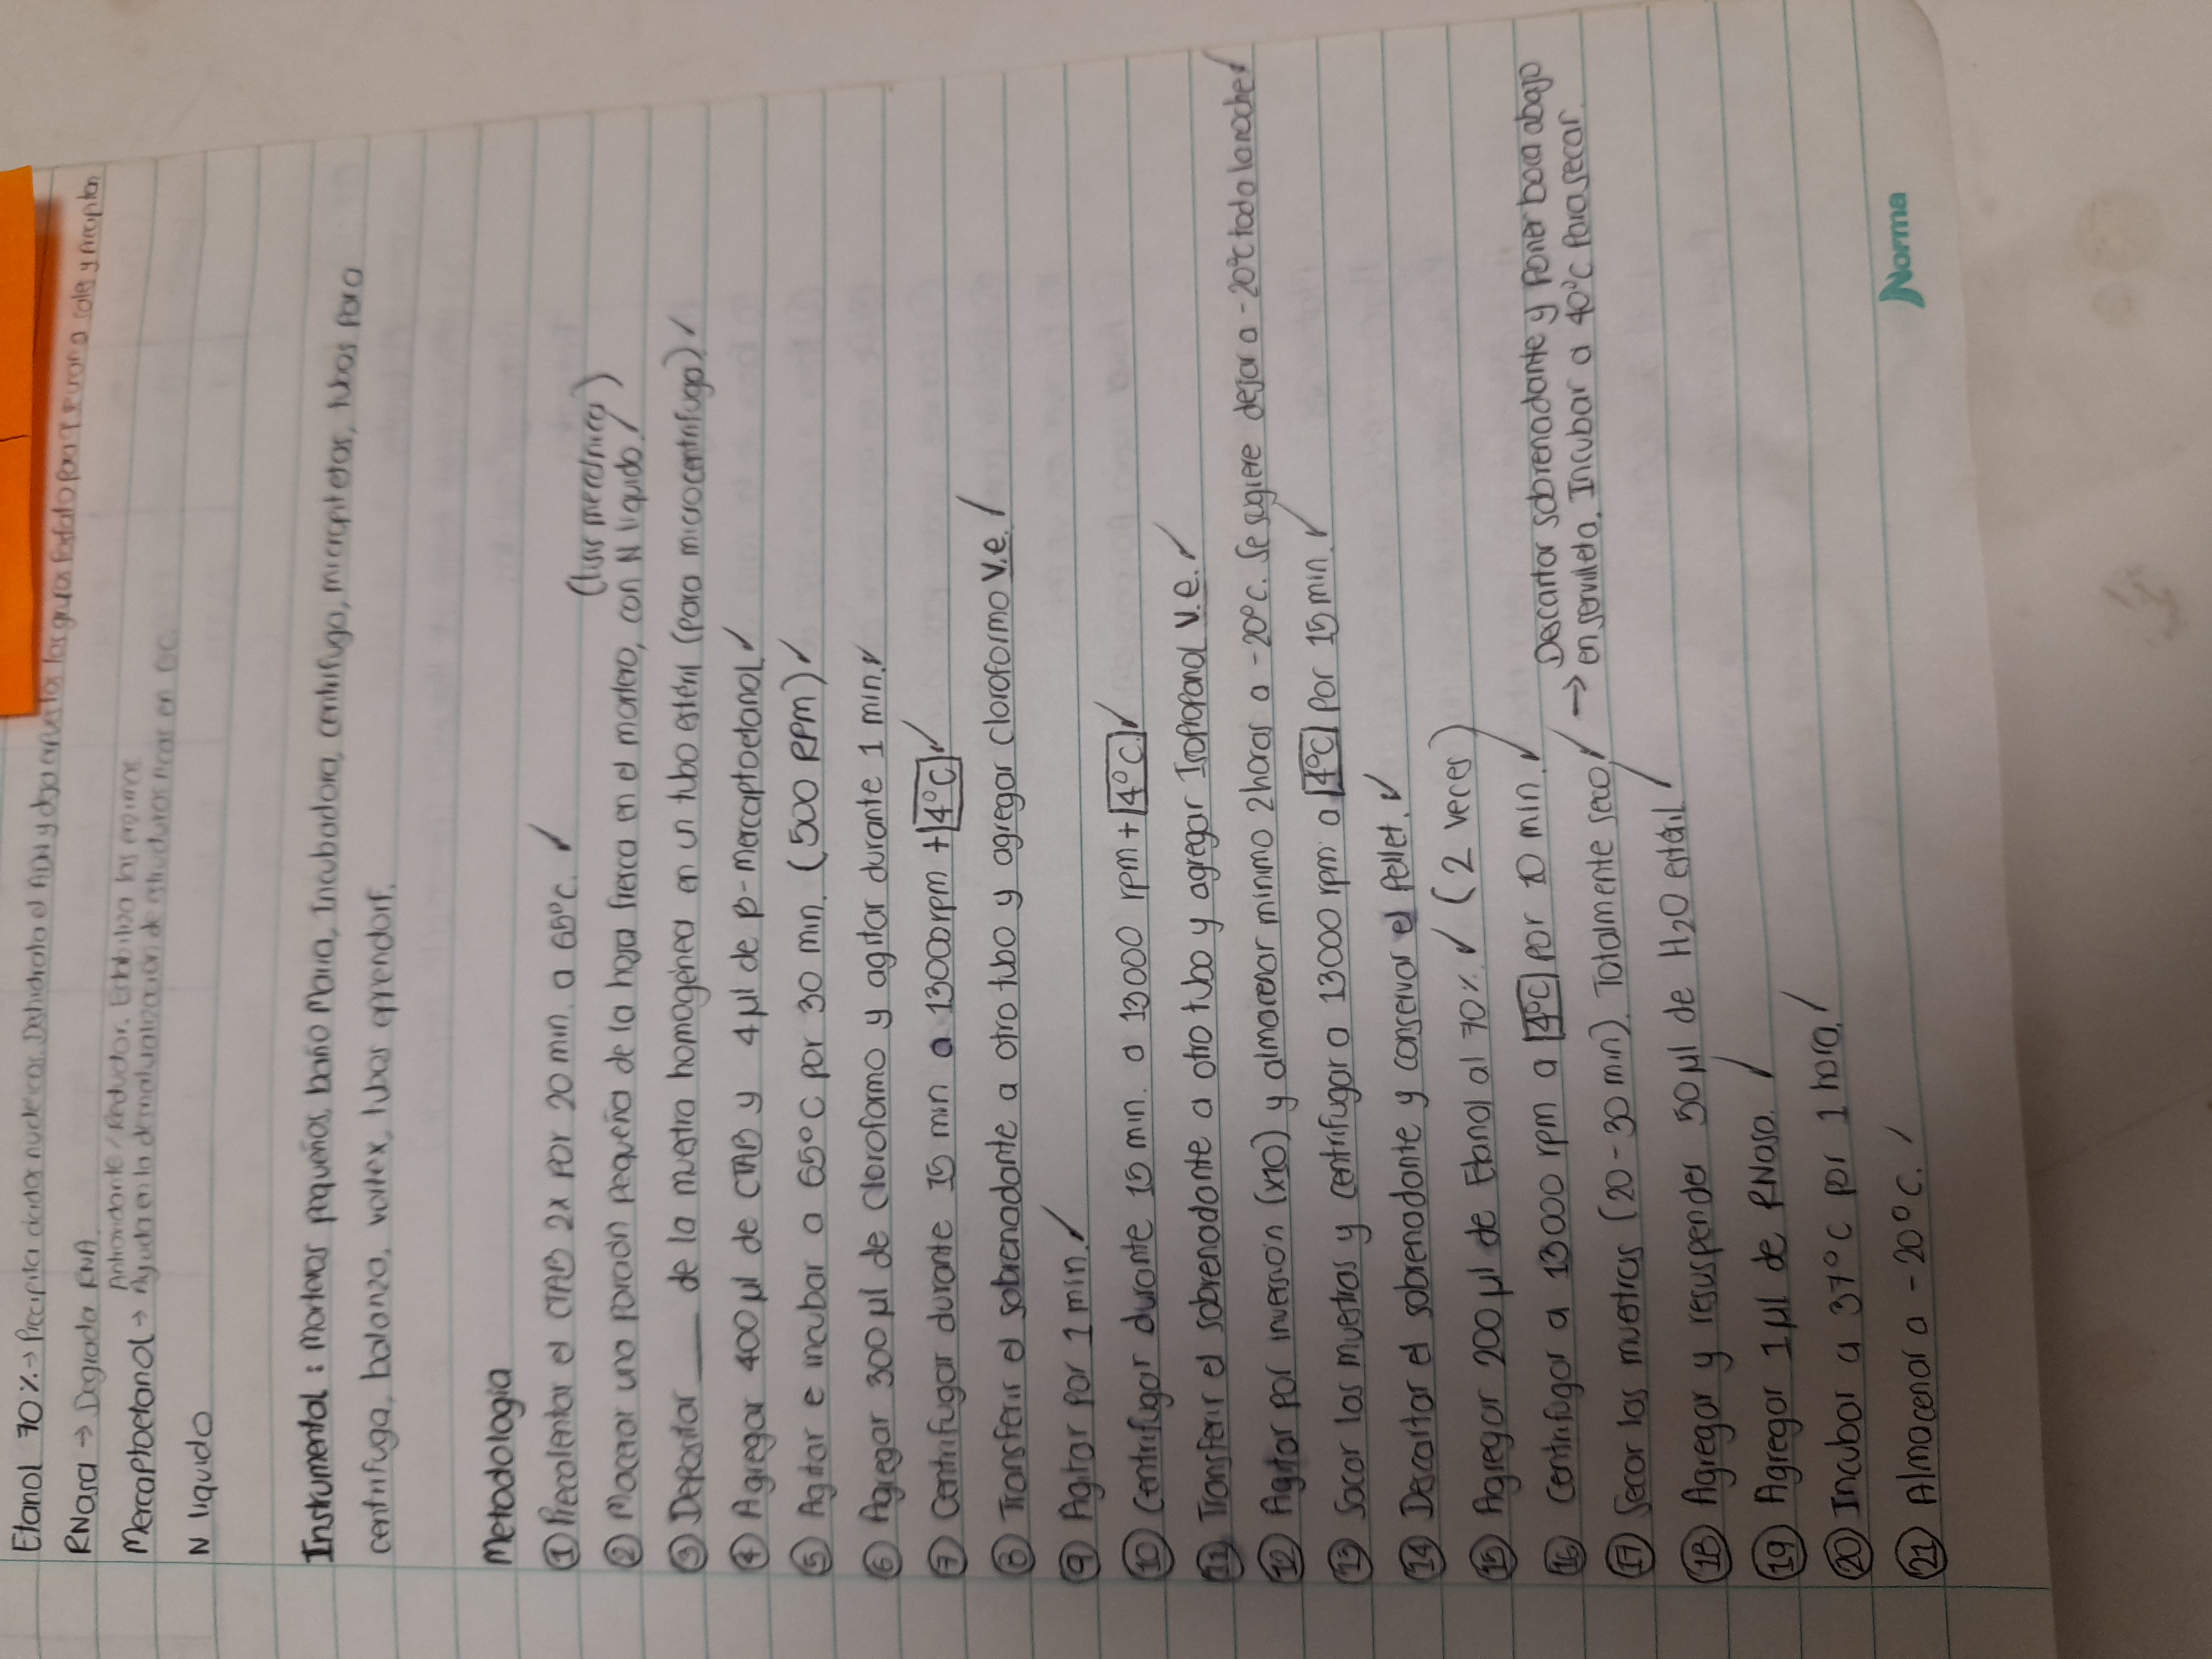 Etanol 70% → Precipita ácidos nucleicos. Deshidrata el ADN y deja expuestos los grupos fosfato para q se unan a sales y precipiten
RNasa → Degrada RNA
Antioxidante/Reductor. Estabiliza las enzimas
Mercaptoetanol → Ayuda en la desnaturalización de estructuras ricas en GC.
N liquido
Instrumental: morteros pequeños, baño María, Incubadora, centrifuga, micropipetas, tubos para
centrifuga, balanza, vortex, tubos eppendorf.
Metodología
① Precalentar el CTAB 2x por 20 min. a 65°C. ✓
(lisis mecánica)
② Macerar una porción pequeña de la hoja fresca en el mortero, con N liquido. ✓
③ Depositar ___ de la muestra homogénea en un tubo estéril (para microcentrifuga) ✓
④ Agregar 400 µl de CTAB y 4 µl de β-mercaptoetanol ✓
⑤ Agitar e incubar a 65°C por 30 min. (500 RPM) ✓
⑥ Agregar 300 µl de cloroformo y agitar durante 1 min. ✓
⑦ Centrifugar durante 15 min a 13000 rpm + 4°C ✓
⑧ Transferir el sobrenadante a otro tubo y agregar cloroformo v.e. ✓
⑨ Agitar por 1 min. ✓
⑩ Centrifugar durante 15 min. a 13000 rpm + 4°C ✓
⑪ Transferir el sobrenadante a otro tubo y agregar Isopropanol v.e. ✓
⑫ Agitar por inversión (x10) y almacenar mínimo 2 horas a -20°C. Se sugiere dejar a -20°C toda la noche ✓
⑬ Sacar las muestras y centrifugar a 13000 rpm a 4°C por 15 min. ✓
⑭ Descartar el sobrenadante y conservar el pellet. ✓
⑮ Agregar 200 µl de Etanol al 70% ✓ (2 veces)
⑯ Centrifugar a 13000 rpm a 4°C por 10 min. ✓
Descartar sobrenadante y poner boca abajo
→ en servilleta. Incubar a 40°C para secar.
⑰ Secar las muestras (20-30 min). Totalmente seco ✓
⑱ Agregar y resuspender 50 µl de H2O estéril ✓
⑲ Agregar 1 µl de RNasa. ✓
⑳ Incubar a 37°C por 1 hora ✓
㉑ Almacenar a -20°C. ✓
Norma